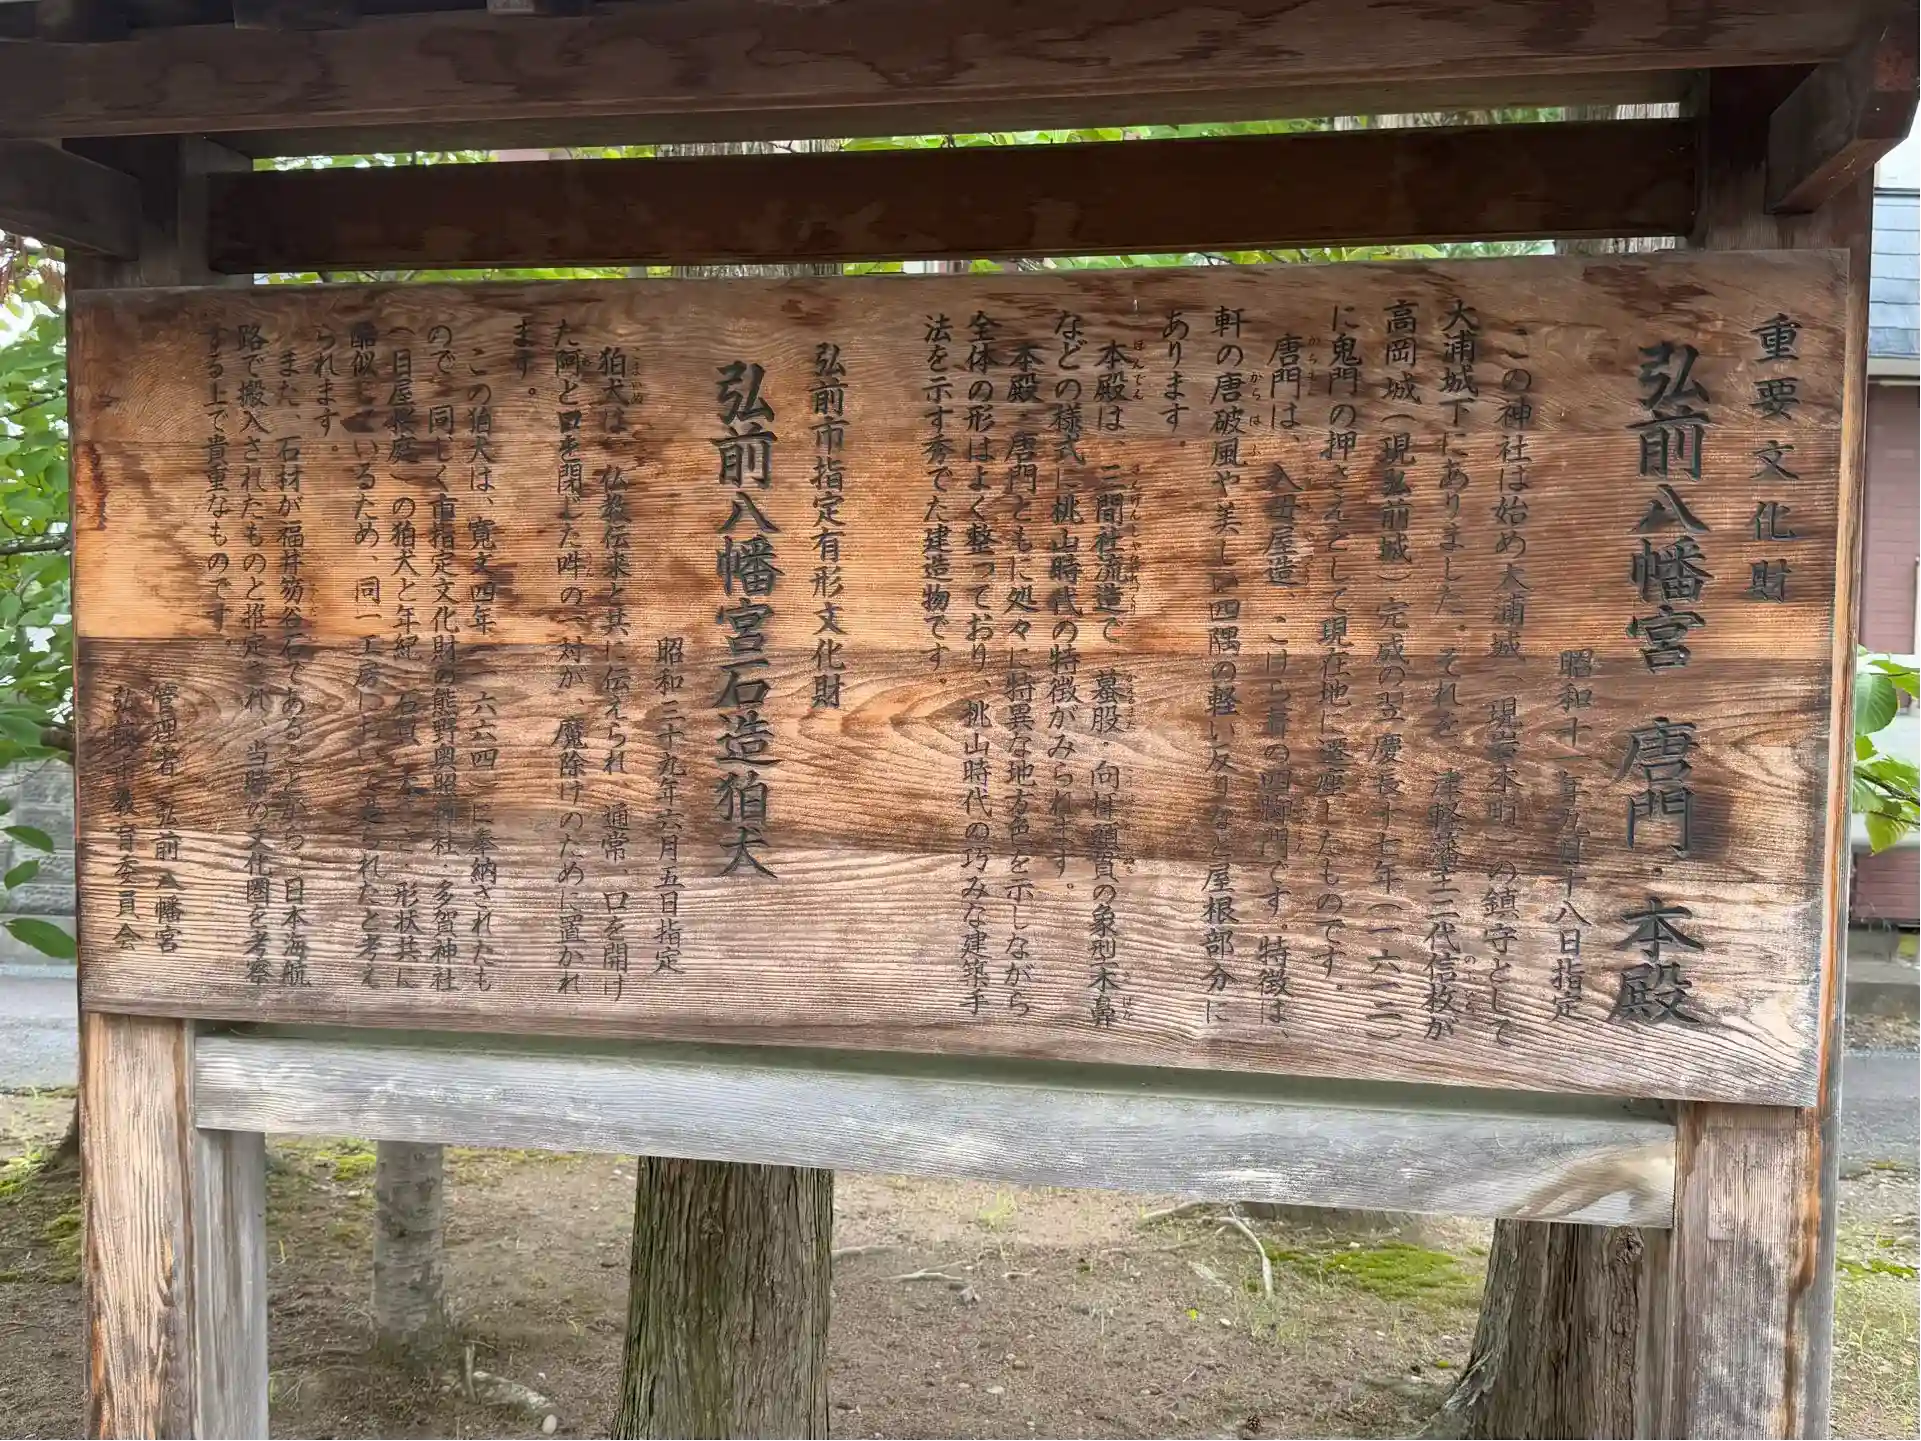 重要文化財
弘前八幡宮 唐門 本殿
昭和十一年九月十八日指定
この神社は始め大浦城(現岩木町)の鎮守として
大浦城下にありました。それを、津軽藩主二代信枚が
高岡城(現弘前城)完成の翌慶長十七年(一六一二)
に鬼門の押さえとして現在地に遷座したものです。
唐門は、入母屋造、こけら葺の四脚門です。特徴は、
軒の唐破風や美しい四隅の軽い反りなど屋根部分に
あります。
本殿は、三間社流造で、蟇股・向拝頭貫の象型木鼻
などの様式に桃山時代の特徴がみられます。
本殿・唐門ともに処々に特異な地方色を示しながら
全体の形はよく整っており、桃山時代の巧みな建築手
法を示す秀でた建造物です。
弘前市指定有形文化財
弘前八幡宮石造狛犬
昭和三十九年六月五日指定
狛犬は、仏教伝来と共に伝えられ、通常、口を開け
た阿と口を閉じた吽の一対が、魔除けのために置かれ
ます。
この狛犬は、寛文四年(一六六四)に奉納されたも
ので、同じく市指定文化財の熊野奥照神社・多賀神社
(目屋桜庭)の狛犬と年紀、石質、大きさ、形状共に
酷似しているため、同一工房において造られたと考え
られます。
また、石材が福井笏谷石であることから、日本海航
路で搬入されたものと推定され、当時の文化圏を考察
する上で貴重なものです。
管理者 弘前八幡宮
弘前市教育委員会